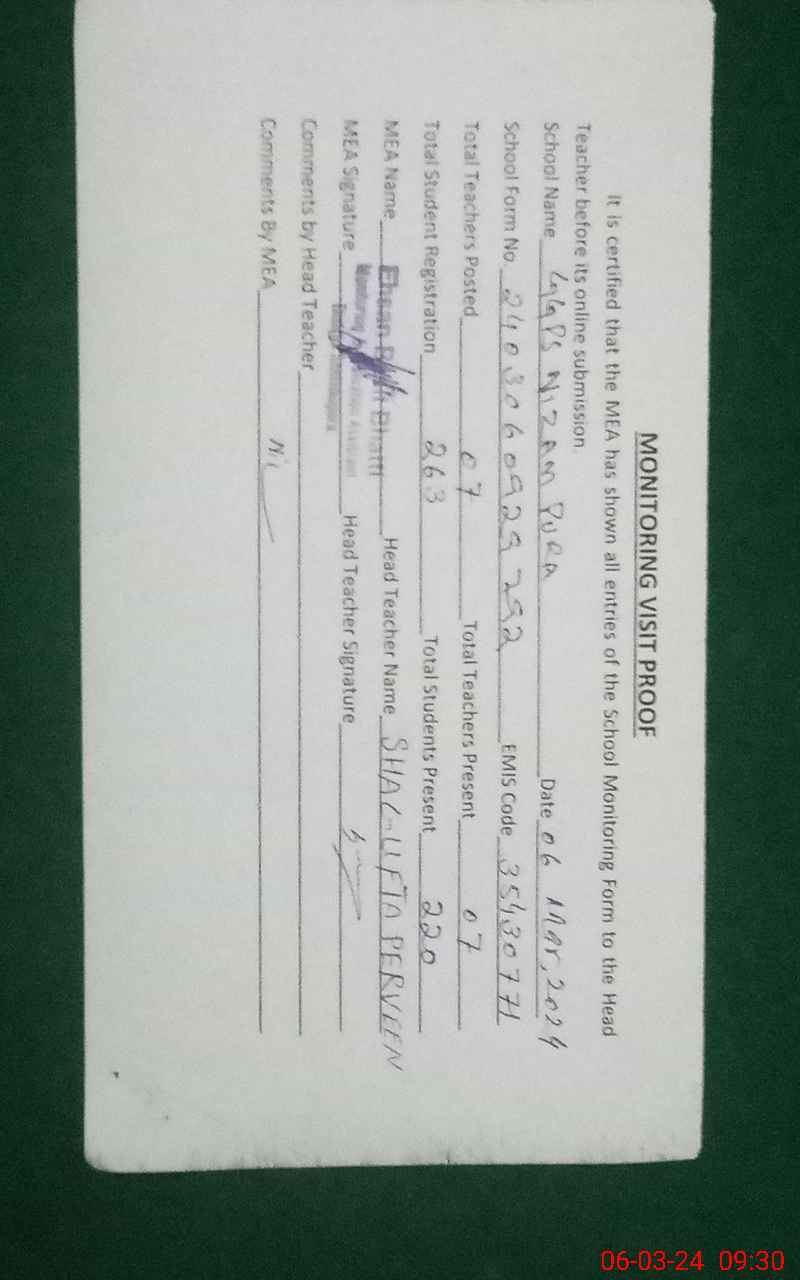 MONITORING VISIT PROOF
It is certified that the MEA has shown all entries of the School Monitoring Form to the Head
Teacher before its online submission.
School Name GGPS NIZAM PURA Date 06 Mar, 2024
School Form No. 2403060929292 EMIS Code 35430771
Total Teachers Posted 07 Total Teachers Present 07
Total Student Registration 263 Total Students Present 220
MEA Name Bhatti Head Teacher Name SHAGUFTA PERVEEN
MEA Signature Monitoring Assistant Head Teacher Signature
Comments by Head Teacher
Comments By MEA Nil
06-03-24 09:30